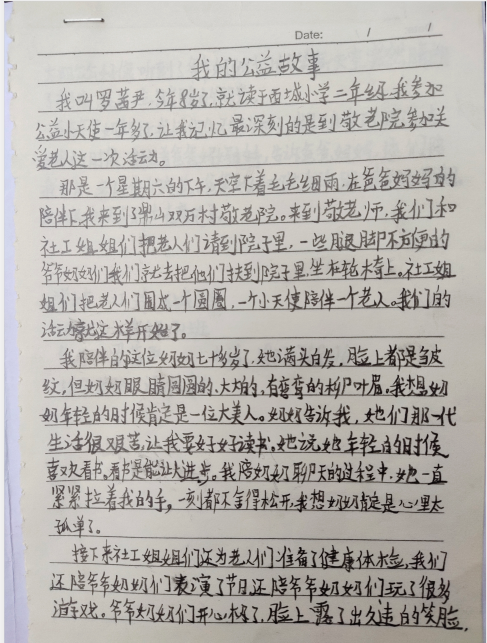 Date: / /
我的公益故事
我叫罗茜尹,今年8岁了,就读于西城小学二年级,我参加
公益小天使一年多了,让我记忆最深刻的是到敬老院参加关
爱老人这一次活动。
那是一个星期六的下午,天空下着毛毛细雨,在爸爸妈妈的
陪伴下,我来到了双石村敬老院。来到敬老师,我们和
社工姐姐们把老人们请到院子里,一些腿脚不方便的
爷爷奶奶们我们就去把他们扶到院子里坐在轮椅上。社工姐
姐们把老人们围成一个圆圈,一个小天使陪伴一个老人。我们的
活动就这样开始了。
我陪伴的这位奶奶七十多岁了,她满头白发,脸上都是皱皮
纹,但奶奶眼睛圆圆的、大大的,有弯弯的柳叶眉。我想奶
奶年轻的时候肯定是一位大美人。奶奶告诉我,她们那一代
生活很艰苦,让我要好好读书。她说她年轻的时候
喜欢看书。看书是能让人进步。我陪奶奶聊天的过程中,她一直
紧紧拉着我的手,一刻都不舍得松开,我想奶奶肯定是心里太
孤单了。
接下来社工姐姐们还为老人们准备了健康体检,我们
还陪爷爷奶奶们表演了节目,还陪爷爷奶奶们玩了很多
游戏。爷爷奶奶们开心极了,脸上露出了久违的笑脸,